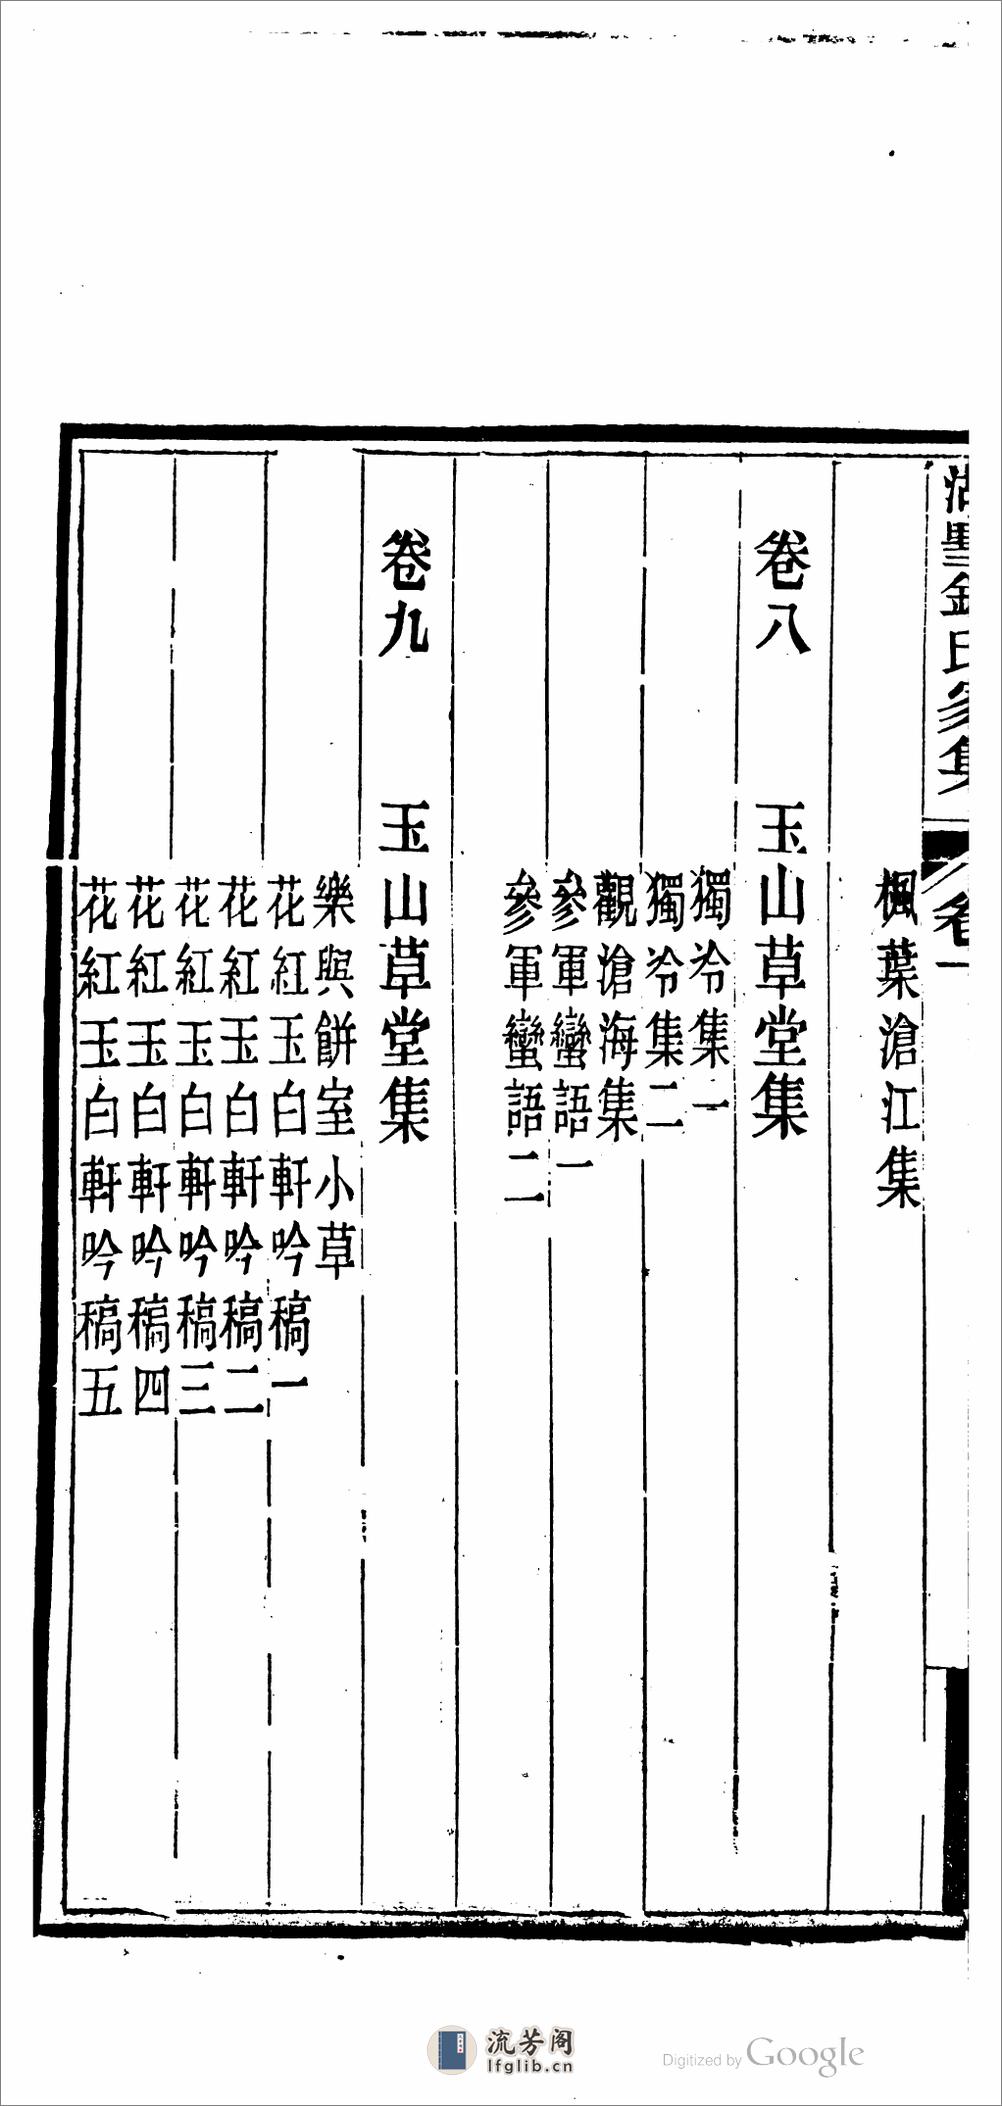 氏家集
卷一
楓葉滄江集
卷八 玉山草堂集
獨冷集一
獨冷集二
觀滄海集
參軍蠻語一
參軍蠻語二
卷九 玉山草堂集
樂與餅室小草
花紅玉白軒吟稿一
花紅玉白軒吟稿二
花紅玉白軒吟稿三
花紅玉白軒吟稿四
花紅玉白軒吟稿五
流芳阁
lfglib.cn
Digitized by Google